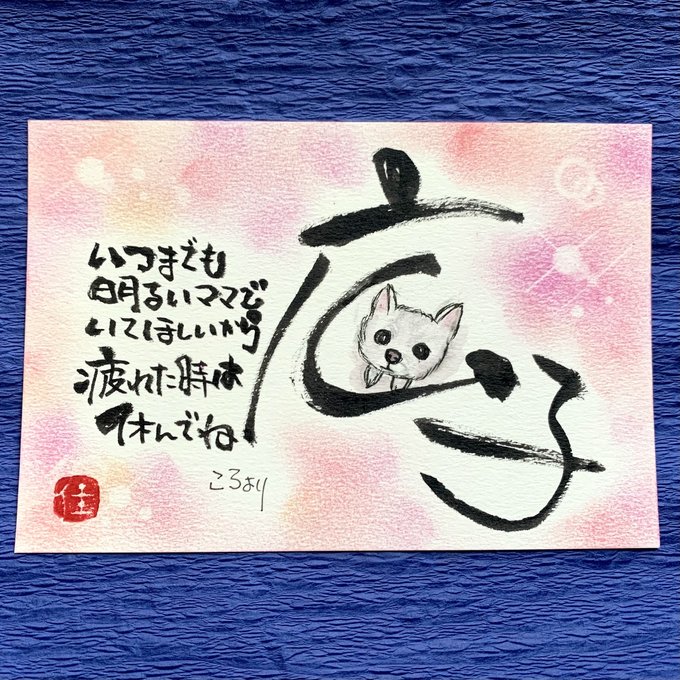 広子
いつまでも
明るいママで
いてほしいから
疲れた時は
休んでね
ころより
佳